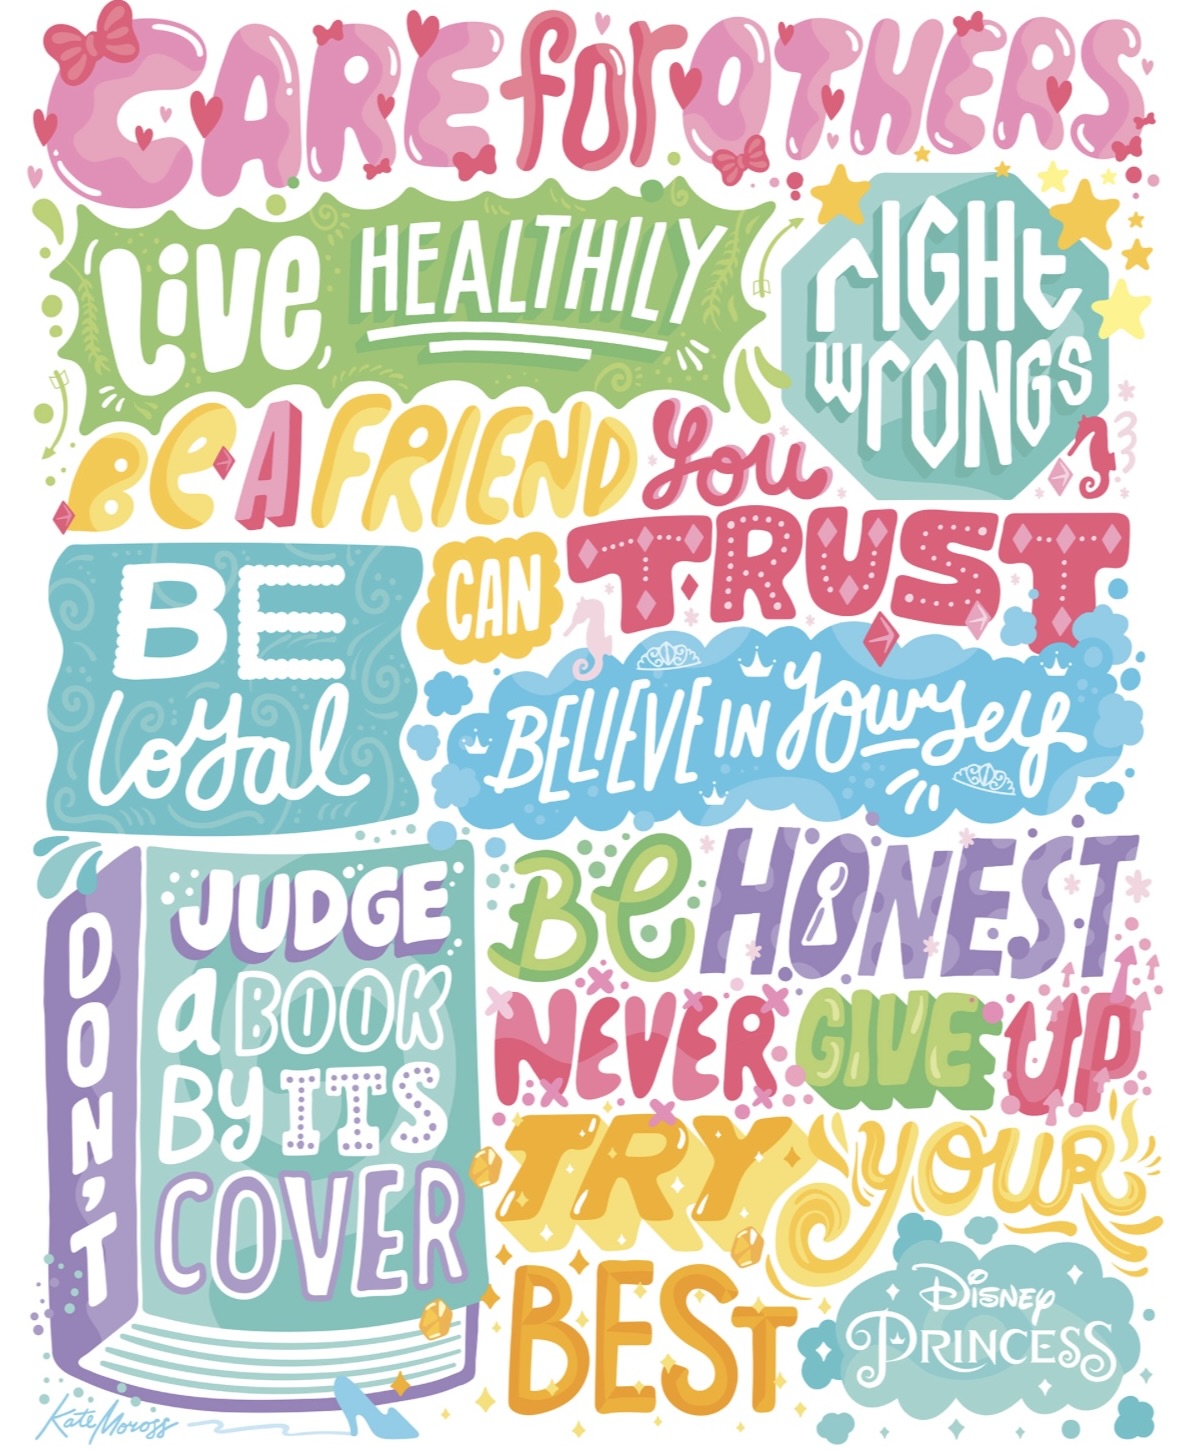 CARE for OTHERS
Live HEALTHILY
rIGHt
wrONGS
Be A FRIEND You
CAN TRUST
BE
loyal
BELIEVE IN yourself
DON'T
JUDGE
a BOOK
By ITS
COVER
Be HONEST
NEVER GIVE UP
TRY your
BEST
Disney
PRINCESS
Kate Moross